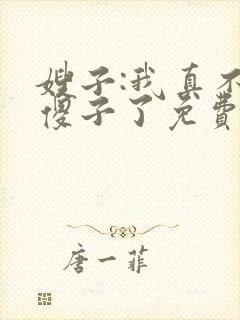 嫂子:我真不
傻子了免费
唐一菲